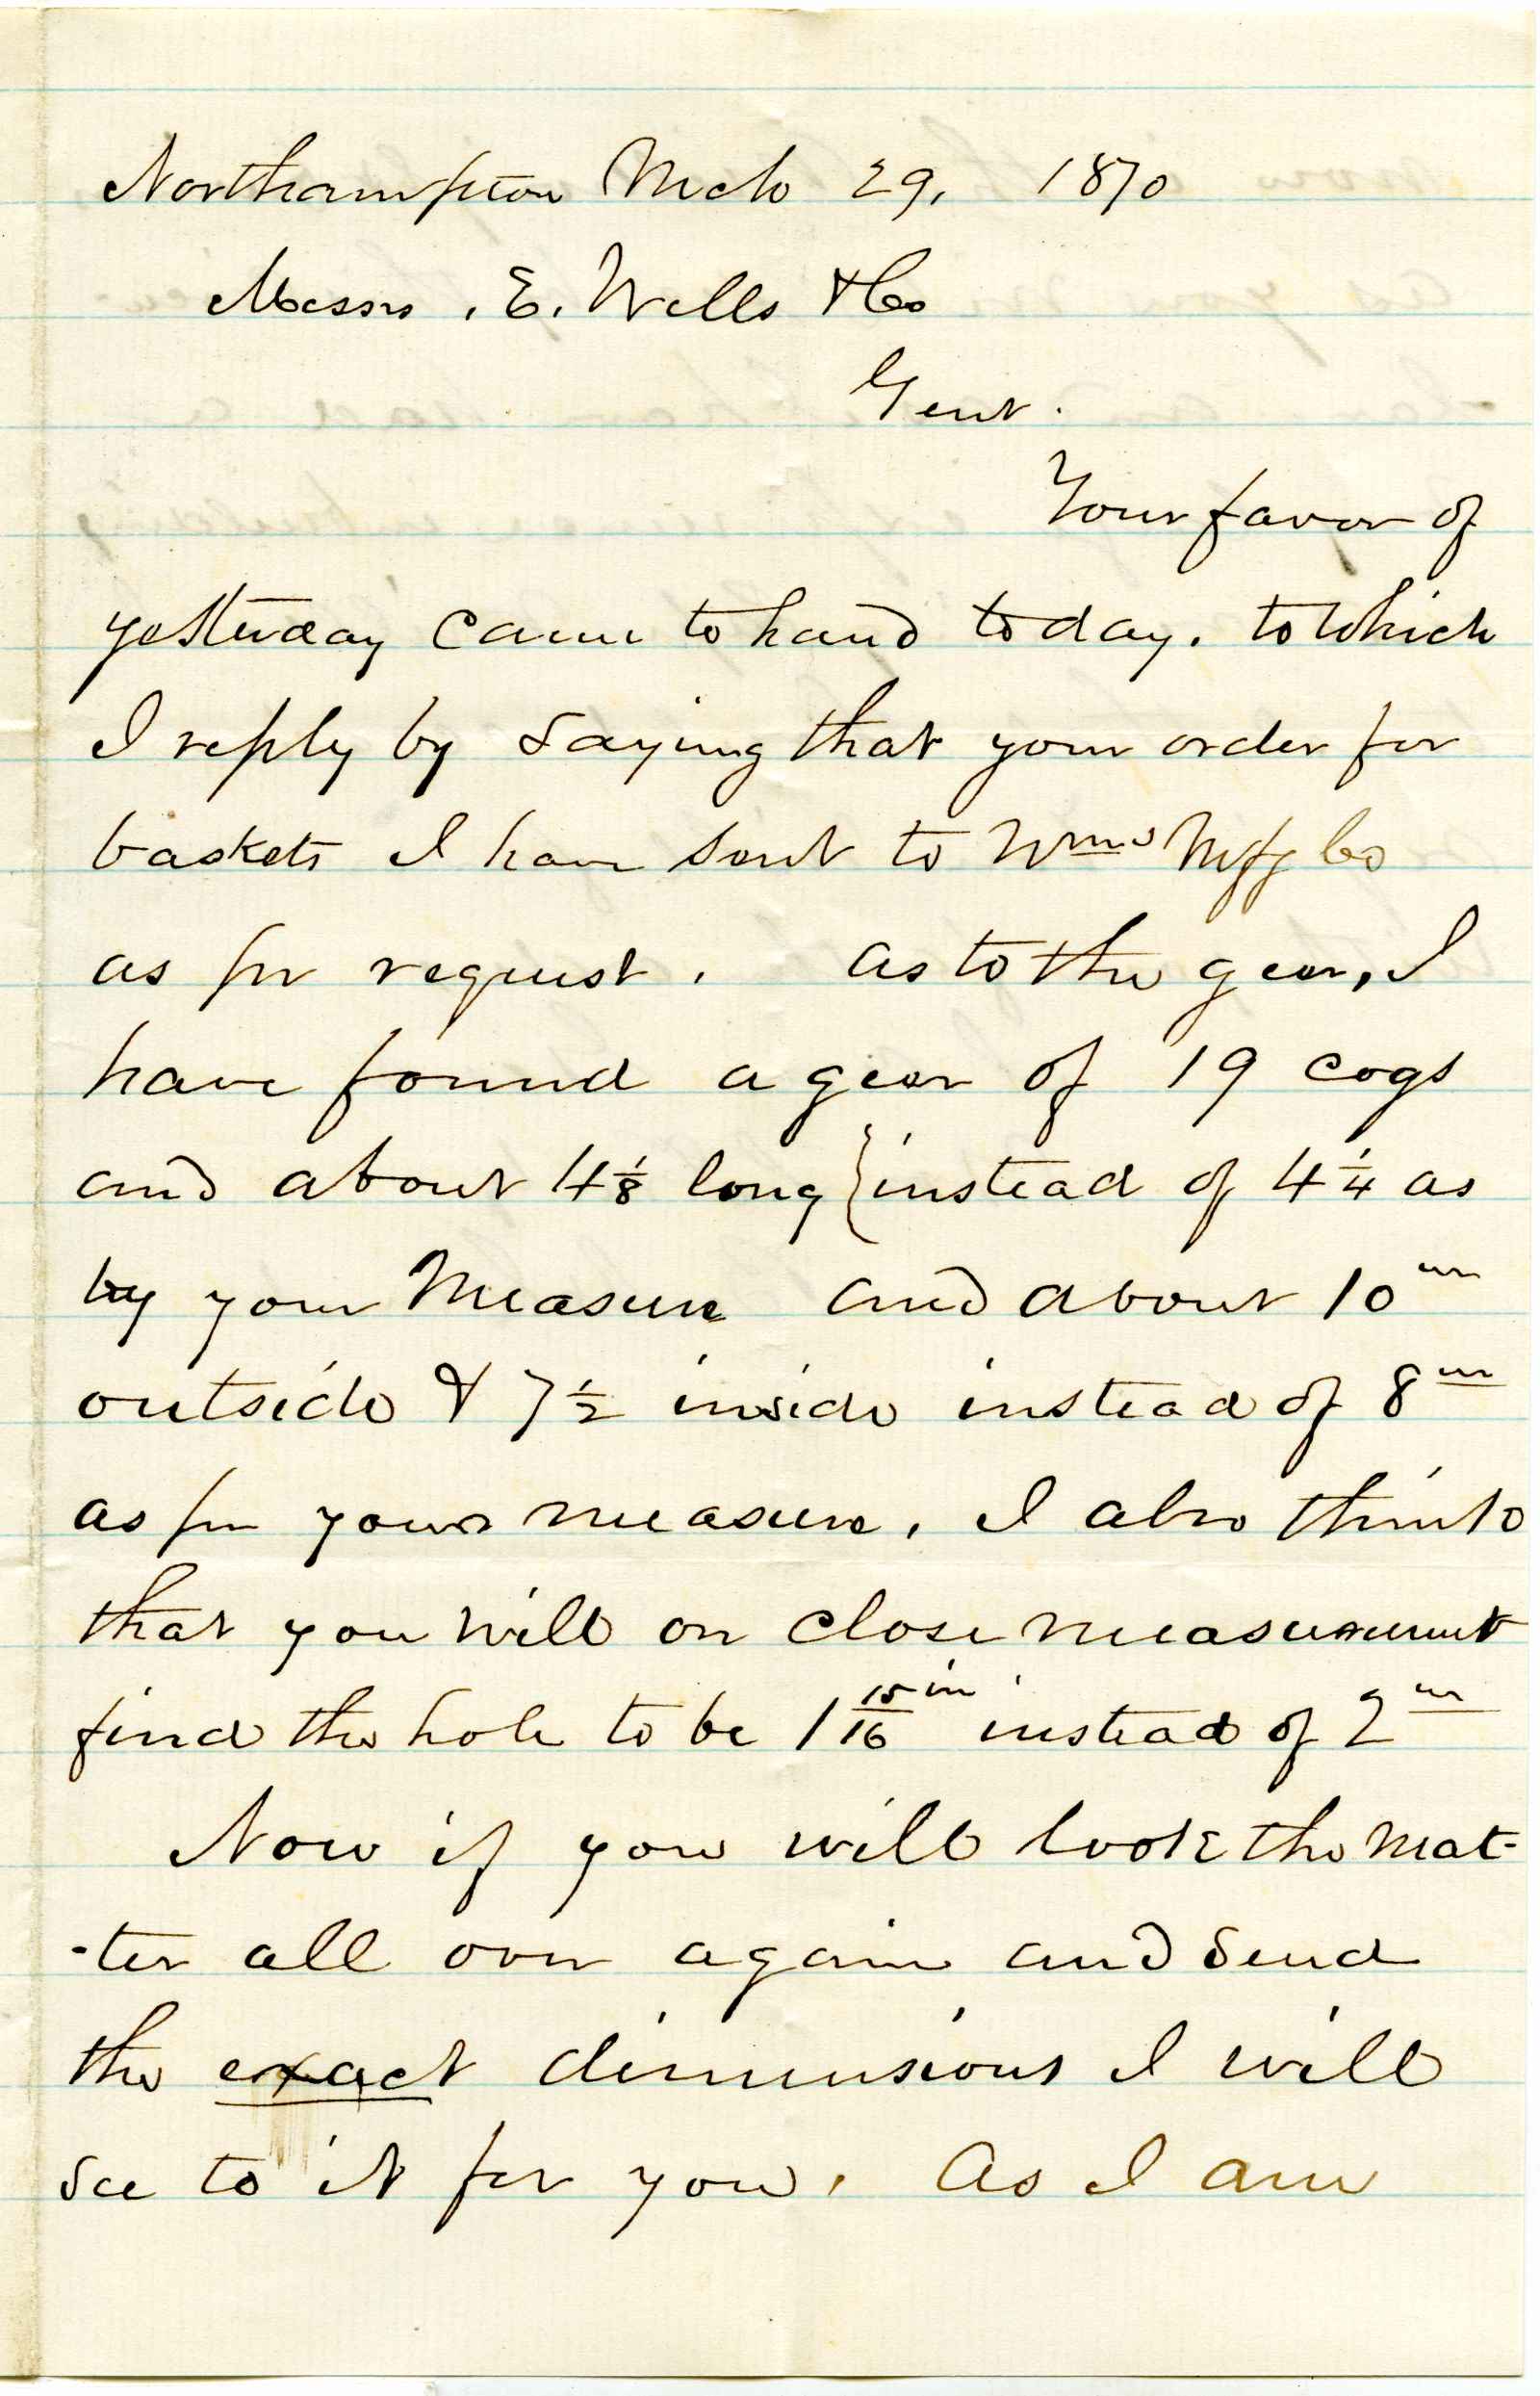 Northampton Mch 29, 1870
Messrs . E. Wells & Co
Gent.
Your favor of
yesterday came to hand today. to which
I reply by saying that your order for
baskets I have sent to Wms Mfg Co
as per request. as to the gear, I
have found a gear of 19 cogs
and about 4 1/8 long } instead of 4 1/4 as
by your measure and about 10 in
outside & 7 1/2 inside instead of 8 in
as per your measure. I also think
that you will on close measurement
find the hole to be 1 15/16 in instead of 2 in
Now if you will look the mat-
-ter all over again and send
the exact dimensions I will
see to it for you. As I am